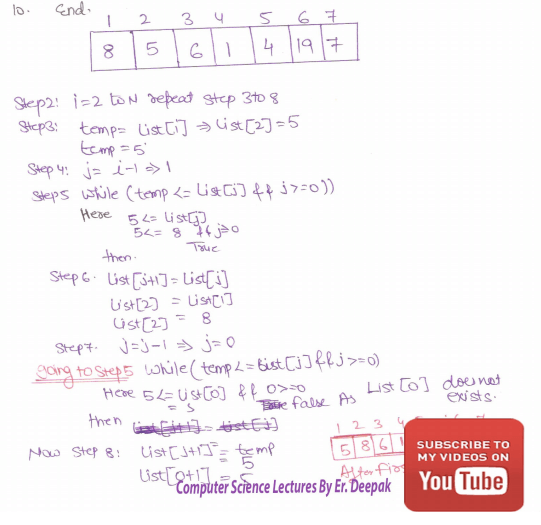 10. End.
1 2 3 4 5 6 7
8 5 6 1 4 19 7
Step2: i=2 to N repeat step 3 to 8
Step3: temp= List[i] ⇒ List[2]=5
temp=5
Step 4: j= i-1 ⇒ 1
Step5 while (temp <= List[j] && j>=0))
Here 5<= List[j]
5<= 8 && j>0
True
then.
Step 6. List[j+1]=List[j]
List[2] = List[1]
List[2] = 8
Step7. j=j-1 ⇒ j=0
going to Step5 while(temp<=List[j] && j>=0)
Here 5<=List[0] && 0>=0
false As List[0] does not
exists.
then
1 2 3
5 8 6 1
Now Step 8: List[j+1] = temp
= 5
List[0+1] = 5
After firs
Computer Science Lectures By Er. Deepak
SUBSCRIBE TO
MY VIDEOS ON
YouTube